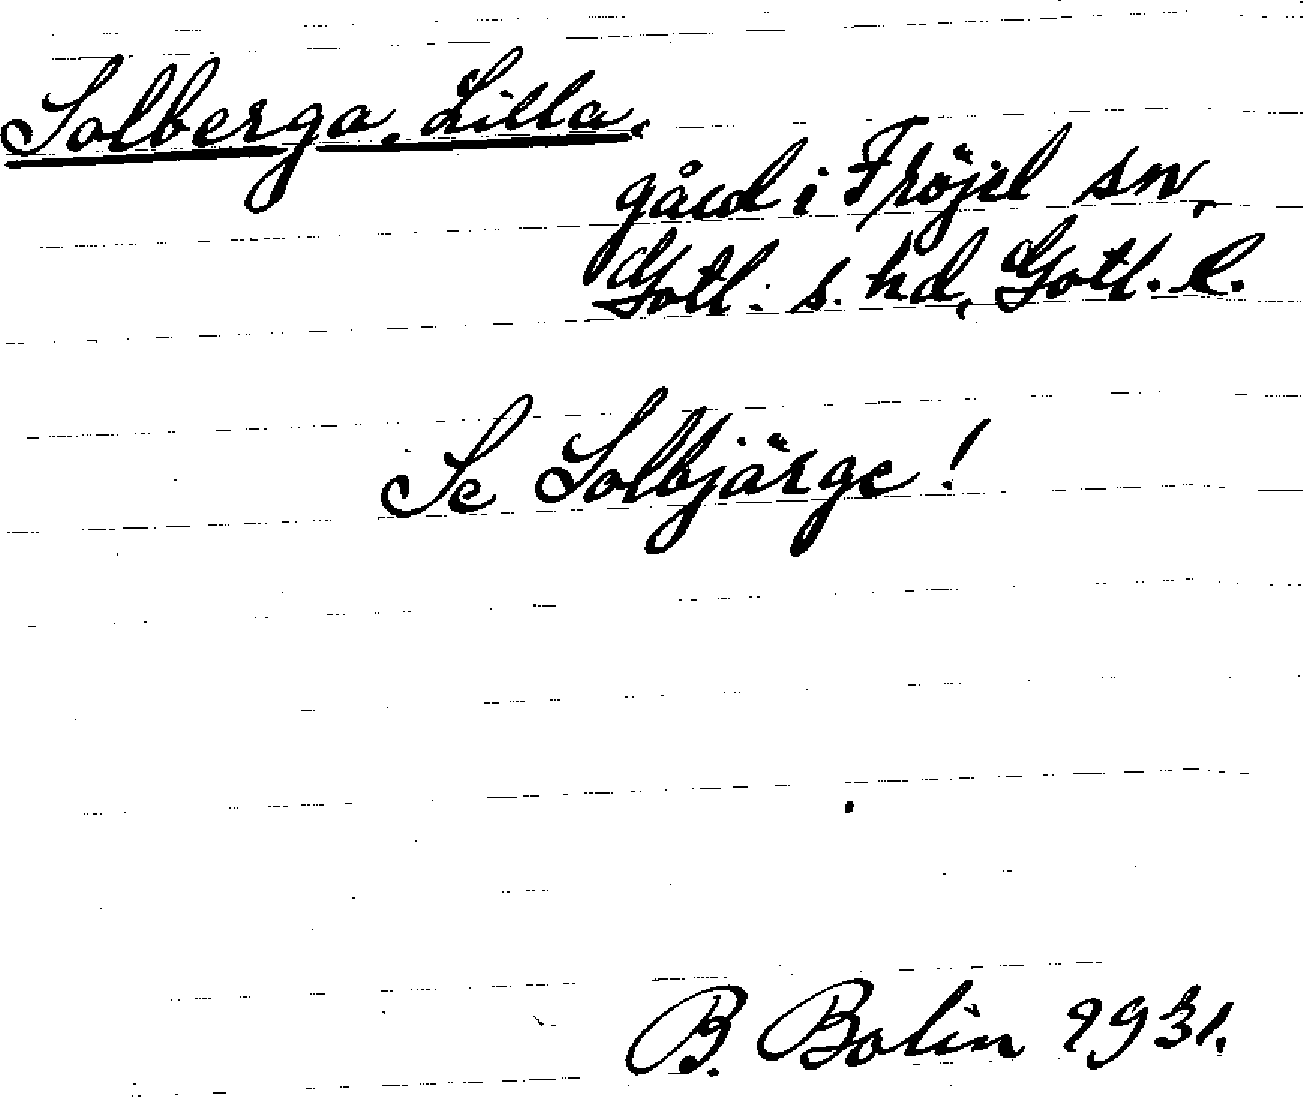 Solberga, Lilla.
gård i Fröjel sn,
Gotl. s. hd, Gotl. l.
Se Solbjärge!
B. Bolin 1931.